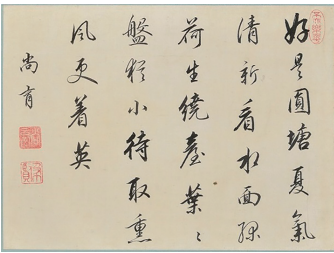 好是圓塘夏氣
清新看水面
荷生繞臺葉〻
盤猶小待取熏
風更着英
尚育